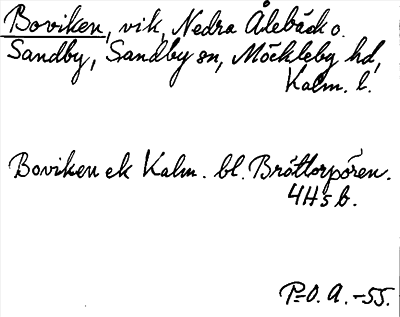 Boviken, vik, Nedra Ålebäck o.
Sandby, Sandby sn, Möckleby hd,
Kalm. l.
Boviken ek Kalm. bl. Bröttorpören.
4H5b.
P-O. A. -55.